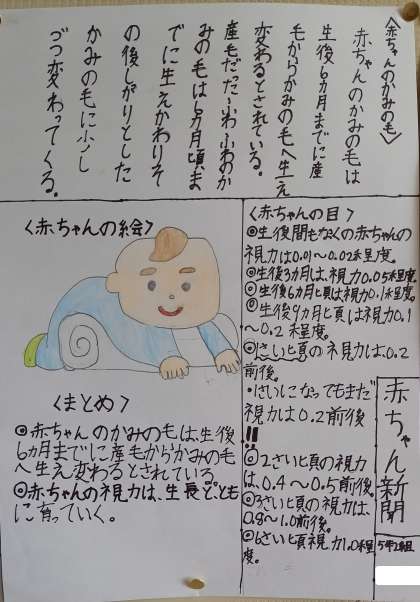 赤ちゃん新聞
5年2組
〈赤ちゃんのかみの毛〉
赤ちゃんのかみの毛は
生後6カ月までに産
毛からかみの毛へ生え
変わるとされている。
産毛だったふわふわのか
みの毛は6カ月頃ま
でに生えかわりそ
の後しがりとした
かみの毛に少し
づつ変わってくる。
〈赤ちゃんの目〉
◎生後間もなくの赤ちゃんの
視力は0.01〜0.02程度。
◎生後3カ月は、視力0.05程度
◎生後6カ月頃は視力0.1程度
◎生後9カ月頃は視力0.1
〜0.2程度。
◎1さい頃の視力は、0.2
前後。
・1さいになってもまだ
視力は0.2前後
!!
◎2さい頃の視力
は、0.4〜0.5前後。
◎3さい頃の視力は、
0.8〜1.0前後。
◎6さい頃視力1.0程
度。
〈赤ちゃんの絵〉
〈まとめ〉
◎赤ちゃんのかみの毛は、生後
6カ月までに産毛からかみの毛
へ生え変わるとされている。
◎赤ちゃんの視力は、生長ととも
に育っていく。